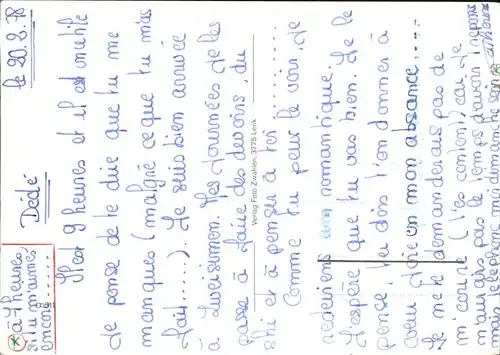 le 20.2.78
Dédé
Il est 9 heures et il est inutile
de te dire que tu me
manques (malgré ce que tu m'as
fait.....). Je suis bien arrivée
à Zweisimmen. Mes journées je les
passe à faire des devoirs, du
ski et à penser à toi.
Comme tu peux le voir je
redeviens romantique.
J'espère que tu vas bien. Je le
pense, tu dois t'en donner à
coeur joie en mon absence....
Je ne te demanderais pas de
m'écrire car je
n'aurais pas le temps d'avoir
à 7 heures,
si tu m'aimes
encore
Verlag Foto Zwahlen, 3775 Lenk